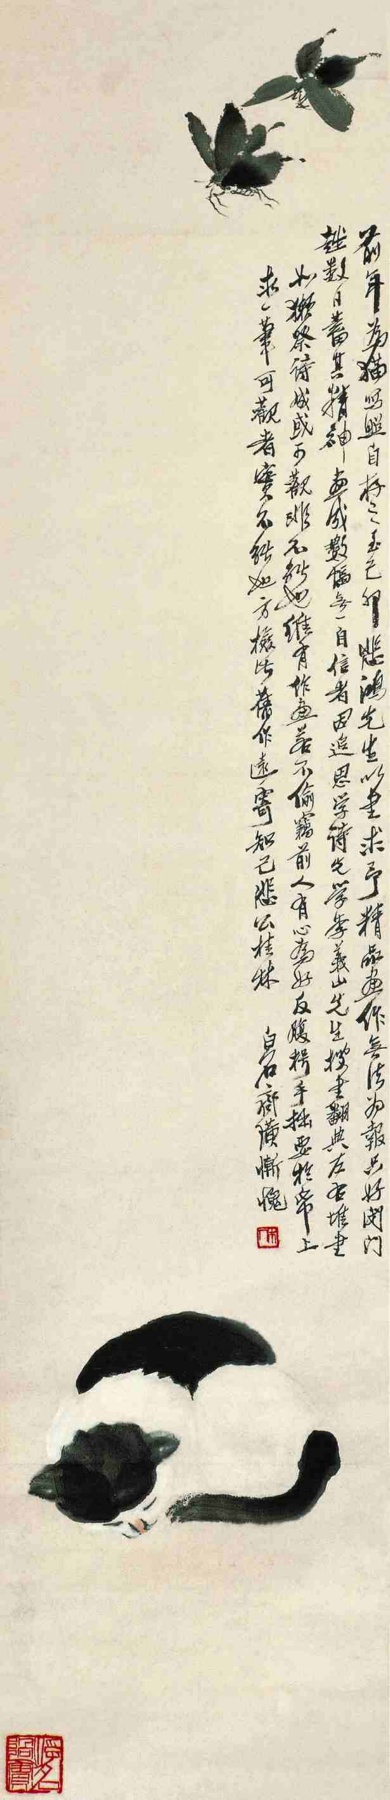 前年为猫写照自存之至己卯悲鸿先生以书求予精品画作无法为报只好闭门
越数日蓄其精神画成数幅无一自信者因追思学诗先学李义山先生搜书翻典左右堆书
如獭祭诗成或可观非不能也维有作画若不偷窃前人有心为好反腹枵手拙要于纸上
求一笔可观者实不能也方捡此旧作远寄知己悲公桂林
白石齐璜惭愧